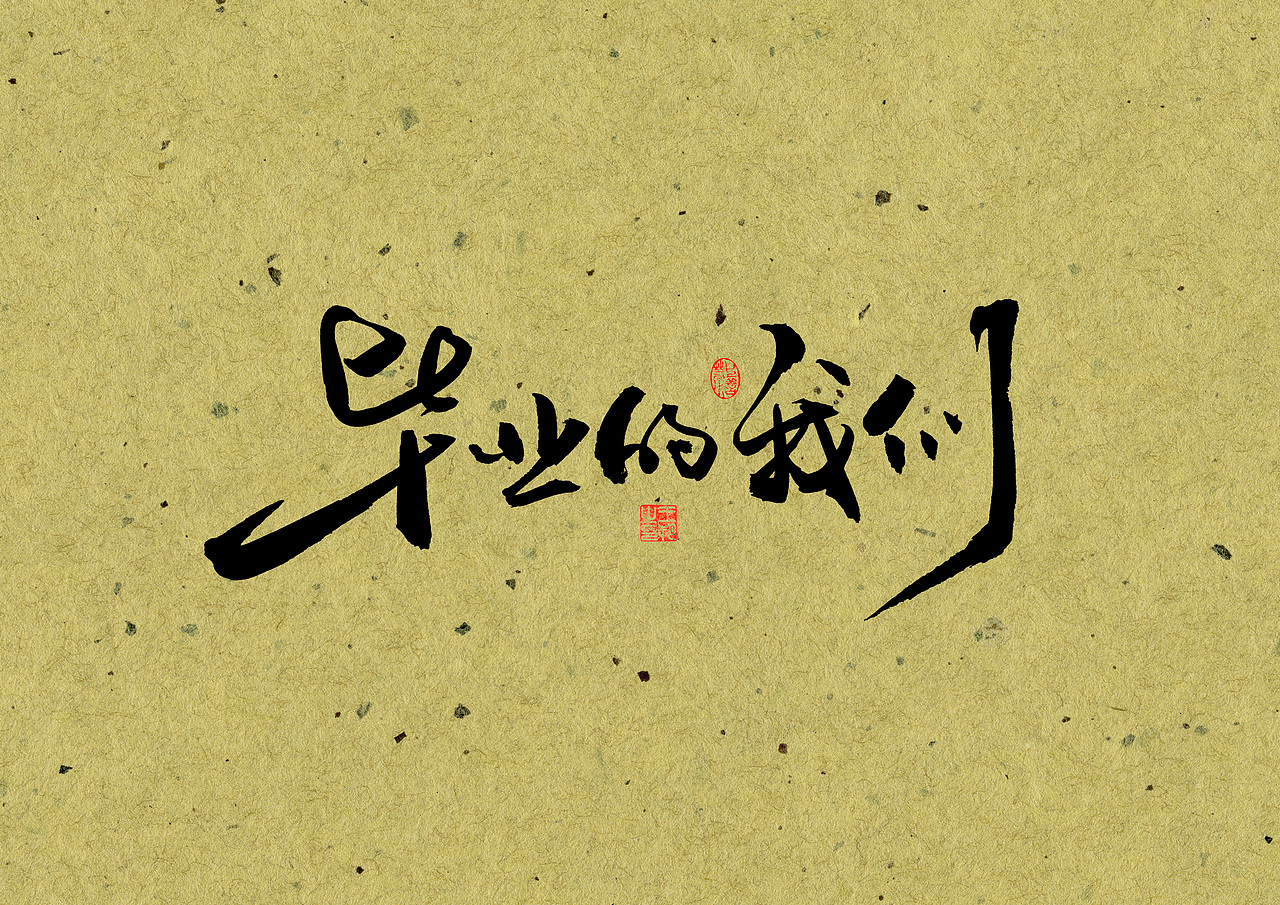 毕业的我们